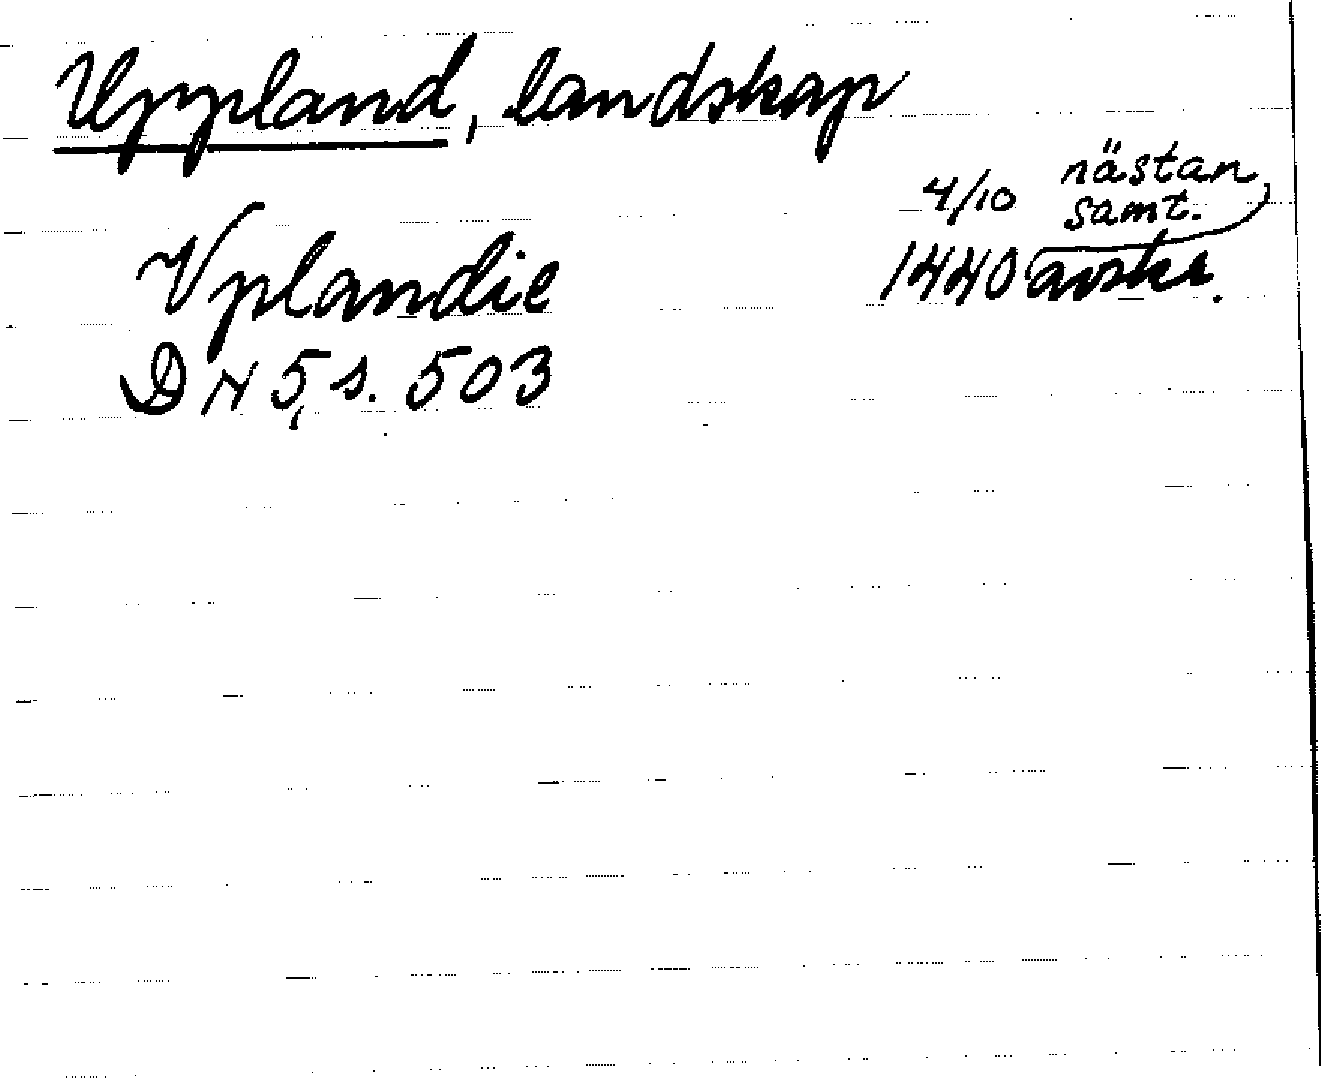 Uppland, landskap
4/10 nästan samt.
1440 avskr.
Vplandie
DN 5, s. 503